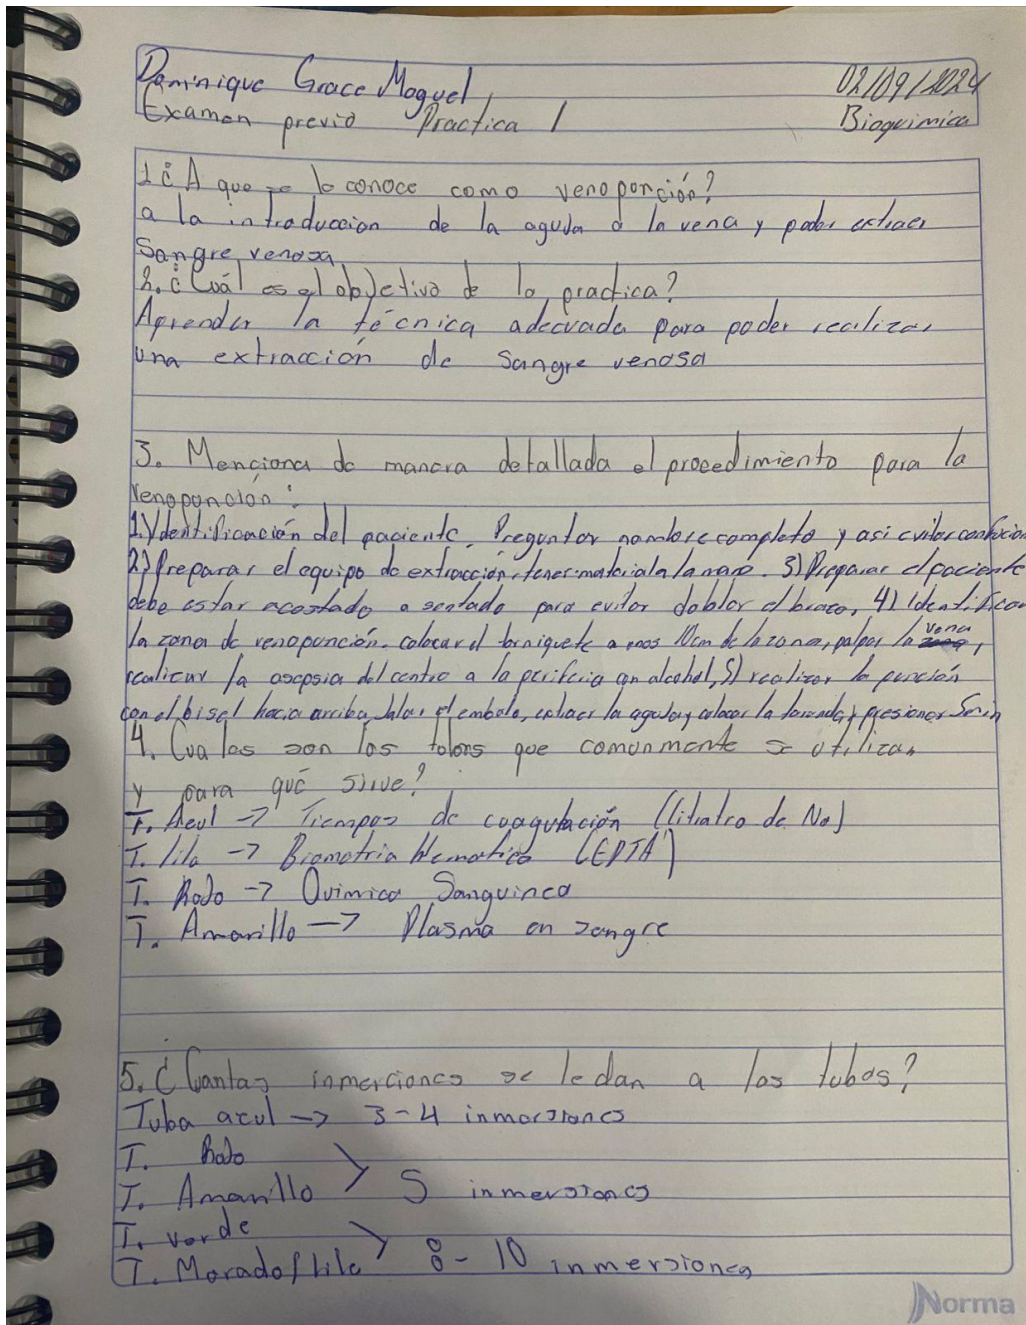 Dominique Grace Moguel 02/09/2024
Examen previo Practica 1 Bioquimica
1 ¿A que se lo conoce como venoponción?
a la introduccion de la aguja a la vena y poder extraer
Sangre venosa
2. ¿Cuál es el objetivo de la practica?
Aprender la técnica adecuada para poder realizar
una extracción de Sangre venosa
3. Menciona de manera detallada el procedimiento para la
venopunción:
1. Ydentificación del paciente. Preguntar nombre completo y asi evitar confucion
2) Preparar el equipo de extracción, tener material a la mano. 3) Preparar el paciente
debe estar acostado o sentado para evitar doblar el brazo, 4) Identificar
la zona de venopunción. colocar el torniquete a mas 10cm de la zona, palpar la vena,
realizar la asepsia del centro a la periferia con alcohol, 5) realizar la punción
con el bisel hacia arriba, Jalar el embolo, extraer la aguja y colocar la torunda y presionar 5min
4. Cuales son los tubos que comunmente se utilizan
y para qué sirve?
T. Azul -> Tiempos de coagulación (Citratro de Na)
T. lila -> Biometria Hematica (EDTA)
T. Rojo -> Quimica Sanguinea
T. Amarillo -> Plasma en sangre
5. ¿Cuantas inmerciones se le dan a los tubos?
Tubo azul -> 3-4 inmersiones
T. Rojo
T. Amarillo > 5 inmersiones
T. verde
T. Morado/Lila > 8-10 inmersiones
Norma